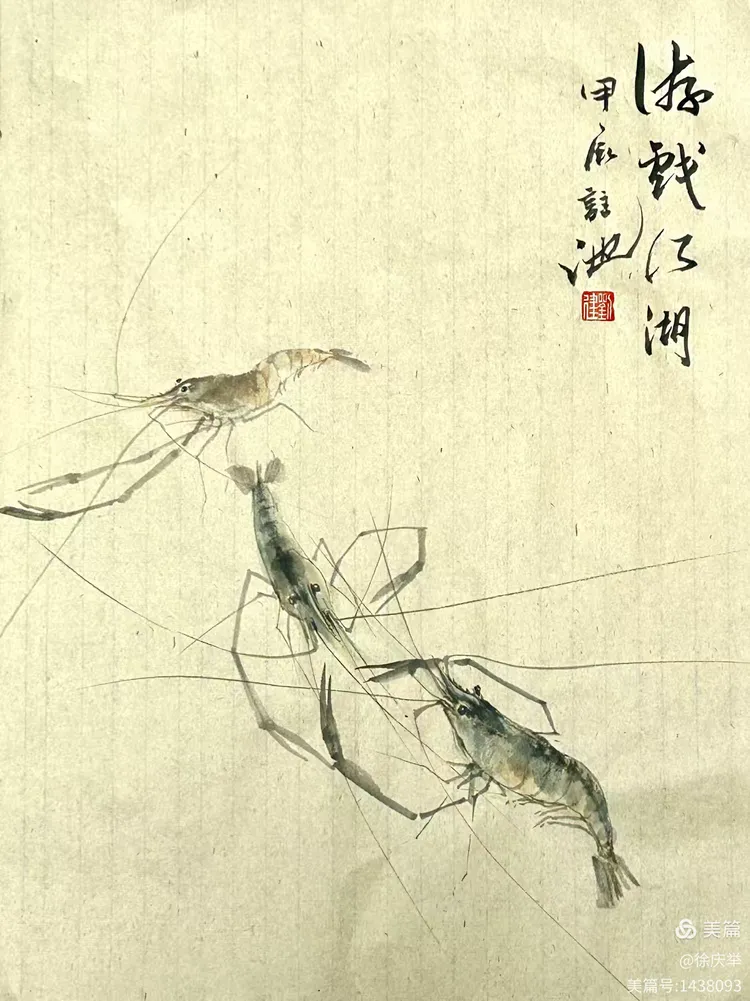 游戏江湖
甲辰
池
美篇
@徐庆举
美篇号:1438093